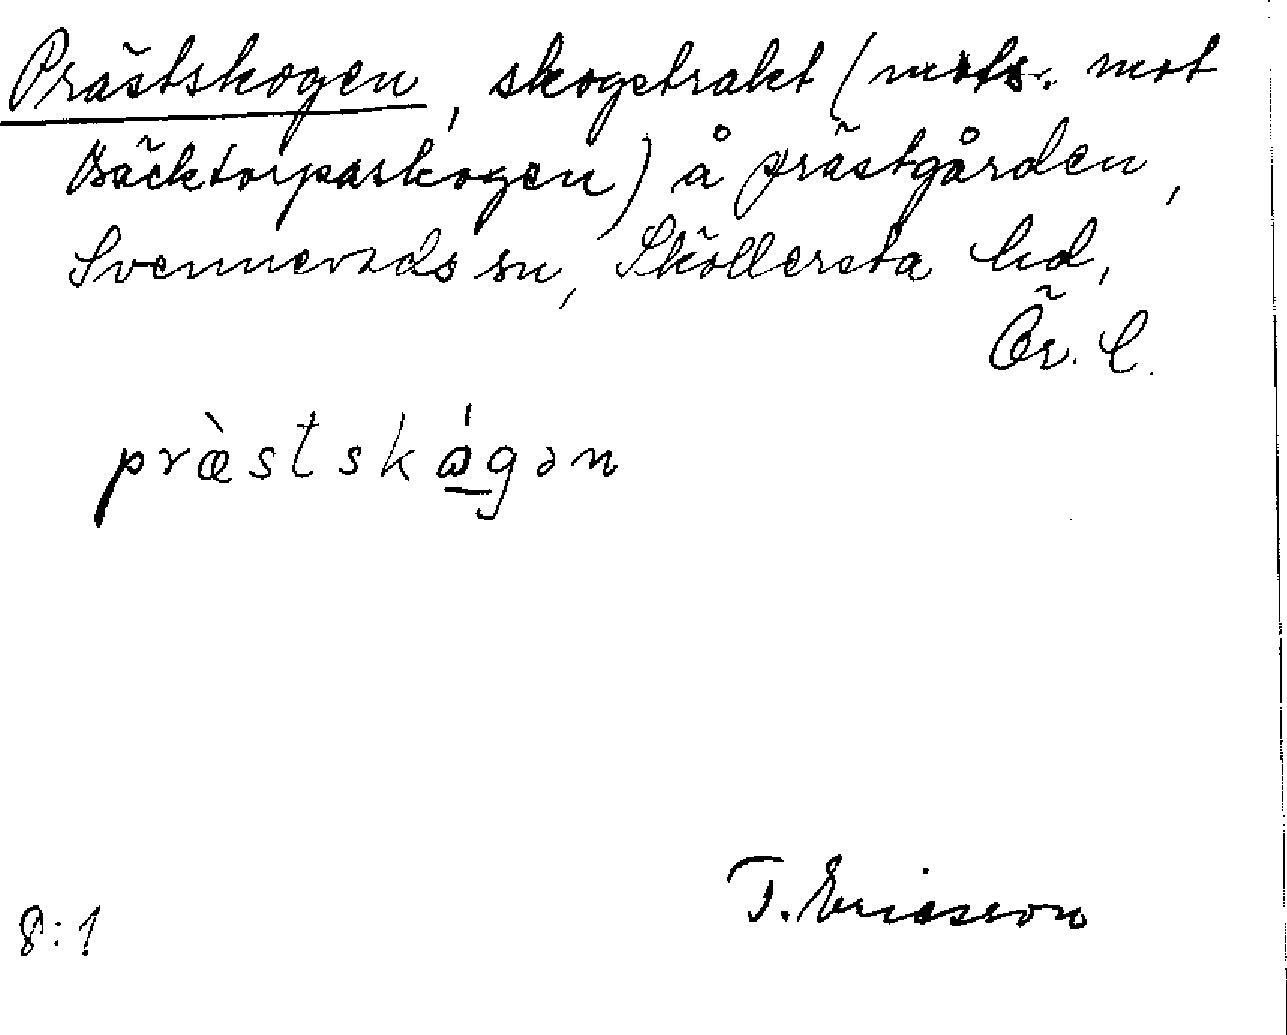 Prästskogen, skogstrakt (mots. mot
Bäcktorpaskogen) å prästgården,
Svennevads sn, Sköllersta hd,
Ör. l.
præ̀stskɷ́gən
T. Ericsson
8:1